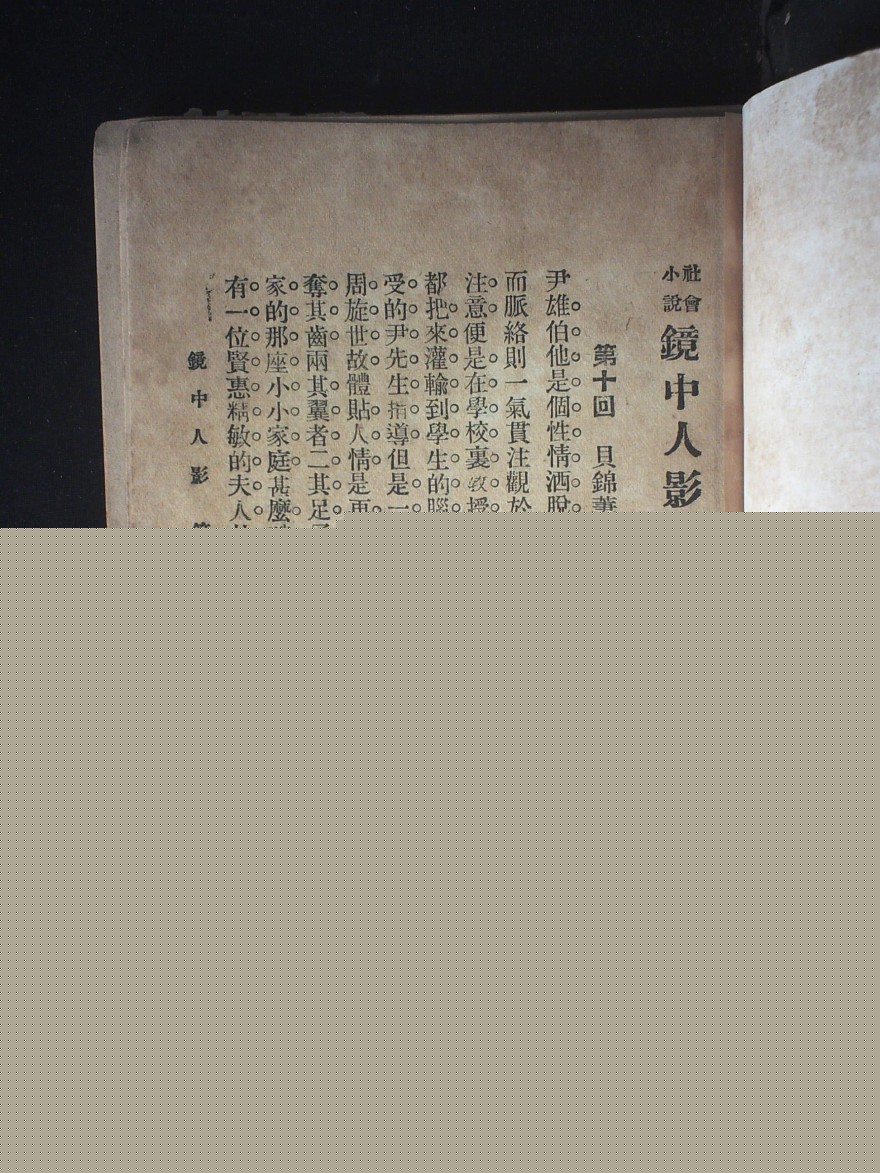 社會
小說
鏡中人影
第十回 貝錦萋
尹雄伯他是個性情洒脫
而脈絡則一氣貫注觀於
注意便是在學校裏教授
都把來灌輸到學生的腦
受的尹先生指導但是一
周旋世故體貼人情是再
奪其齒兩其翼者二其足
家的那座小小家庭甚麼
有一位賢惠精敏的夫人
鏡中人影